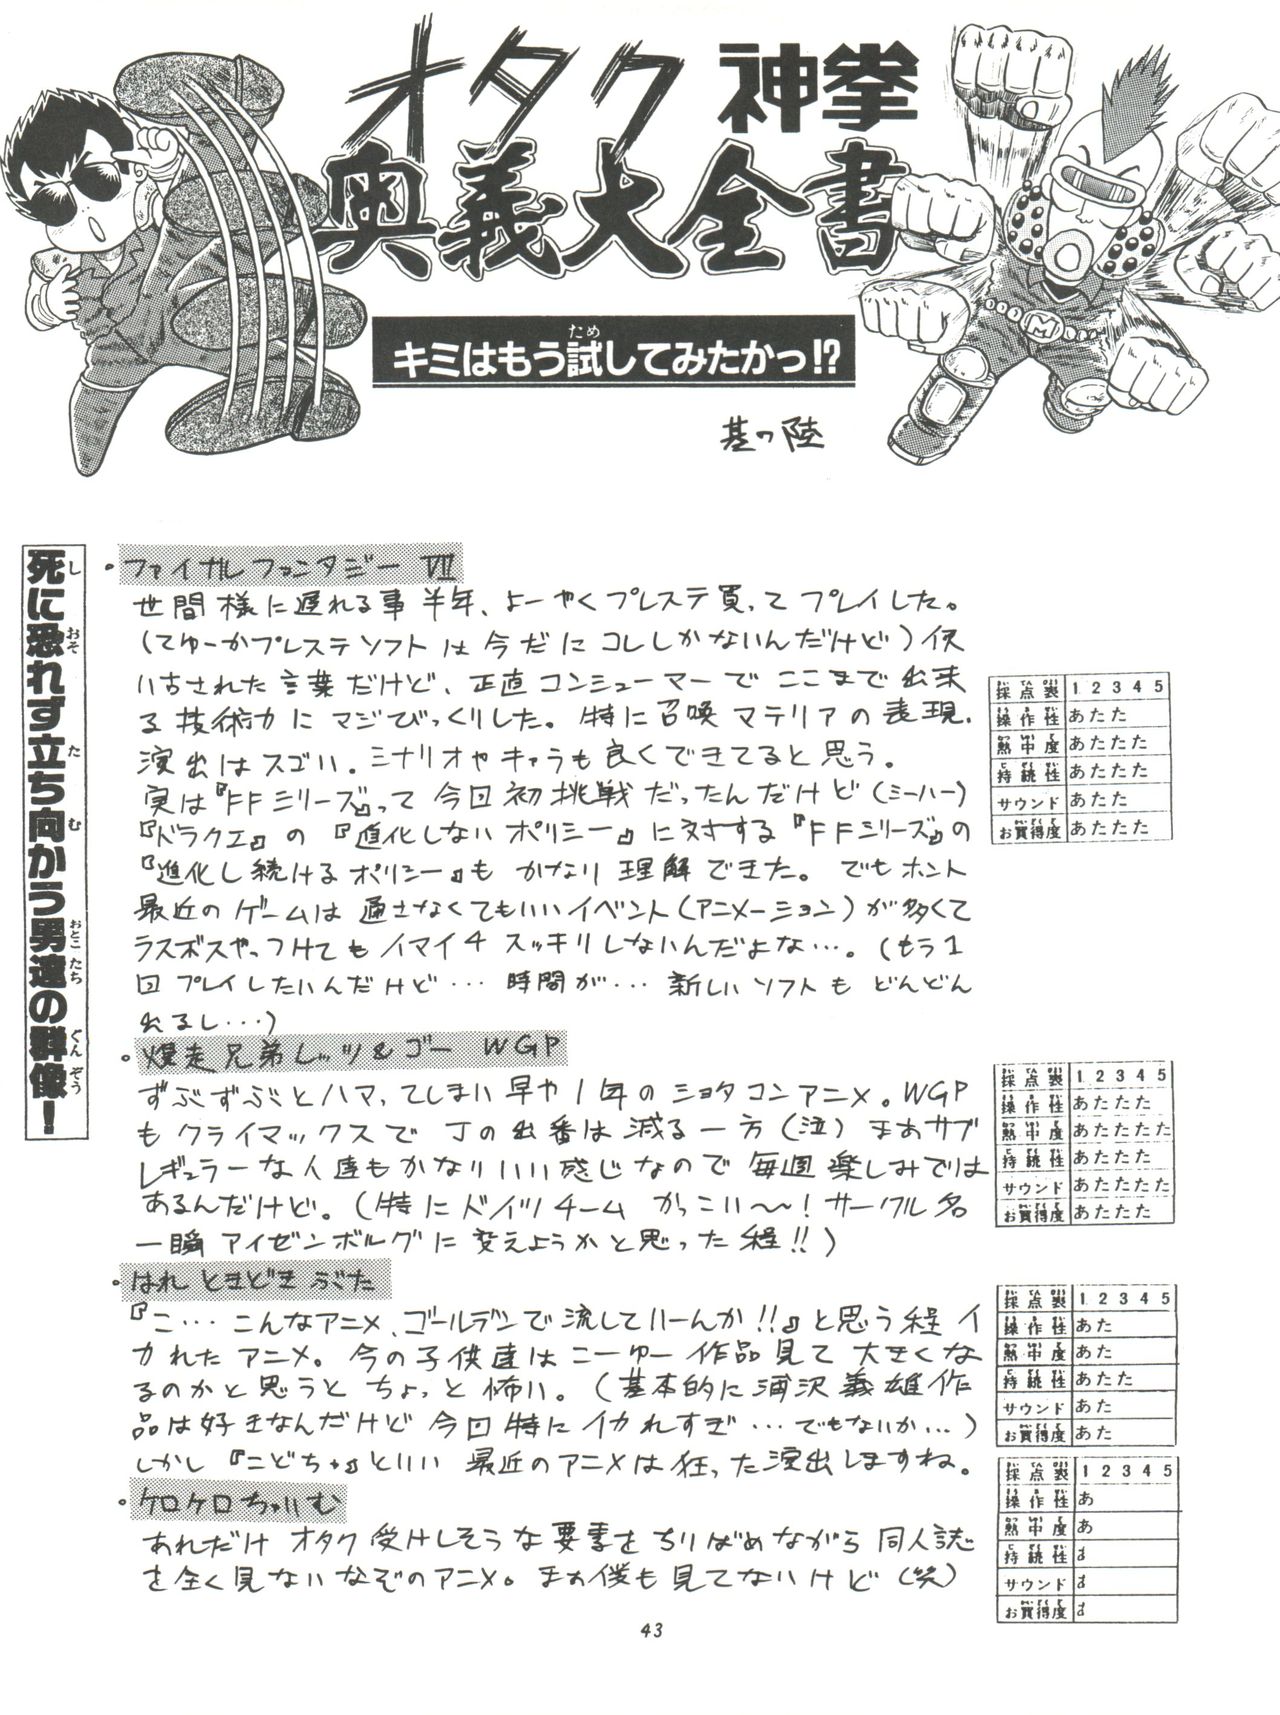 オタク神拳
奥義大全書
ため
キミはもう試してみたかっ!?
其の陸
死に恐れず立ち向かう男達の群像!
し おそ た む おとこ たち ぐん ぞう
・ファイナルファンタジー VII
世間様に遅れる事半年、よーやくプレステ買ってプレイした。
(てゆーかプレステソフトは今だにコレしかないんだけど)使
い古された言葉だけど、正直コンシューマーでここまで出来
る技術力にマジびっくりした。特に召喚マテリアの表現、
演出はスゴい。シナリオやキャラも良くできてると思う。
実は『FFシリーズ』って今回初挑戦だったんだけど(ミーハー)
『ドラクエ』の『進化しないポリシー』に対する『FFシリーズ』の
『進化し続けるポリシー』もかなり理解できた。でもホント
最近のゲームは通さなくてもいいイベント(アニメーション)が多くて
ラスボスやっつけてもイマイチスッキリしないんだよな…。(もう1
回プレイしたいんだけど…時間が…新しいソフトもどんどん
出るし…)
採点表 1 2 3 4 5
操作性 あたた
熱中度 あたたた
持続性 あたたた
サウンド あたた
お買得度 あたたた
・爆走兄弟レッツ&ゴー WGP
ずぶずぶとハマってしまい早や1年のショタコンアニメ。WGP
もクライマックスでJの出番は減る一方(泣)まあサブ
レギュラーな人達もかなりいい感じなので毎週楽しみでは
あるんだけど。(特にドイツチームかっこい〜!サークル名
一瞬アイゼンボルグに変えようかと思った程!!)
採点表 1 2 3 4 5
操作性 あたたた
熱中度 あたたたた
持続性 あたたた
サウンド あたたたた
お買得度 あたたた
・はれときどきぶた
『こ…こんなアニメ、ゴールデンで流していーんか!!』と思う程イ
カれたアニメ。今の子供達はこーゆー作品見て大きくな
るのかと思うとちょっと怖い。(基本的に浦沢義雄作
品は好きなんだけど今回特にイカれすぎ…でもないか…)
しかし『こどちゃ』といい最近のアニメは狂った演出しますね。
採点表 1 2 3 4 5
操作性 あた
熱中度 あた
持続性 あたた
サウンド あた
お買得度 あた
・ケロケロちゃいむ
あれだけオタク受けしそうな要素をちりばめながら同人誌
を全く見ないなぞのアニメ。まあ僕も見てないけど(笑)
採点表 1 2 3 4 5
操作性 あ
熱中度 あ
持続性
サウンド
お買得度
M
43